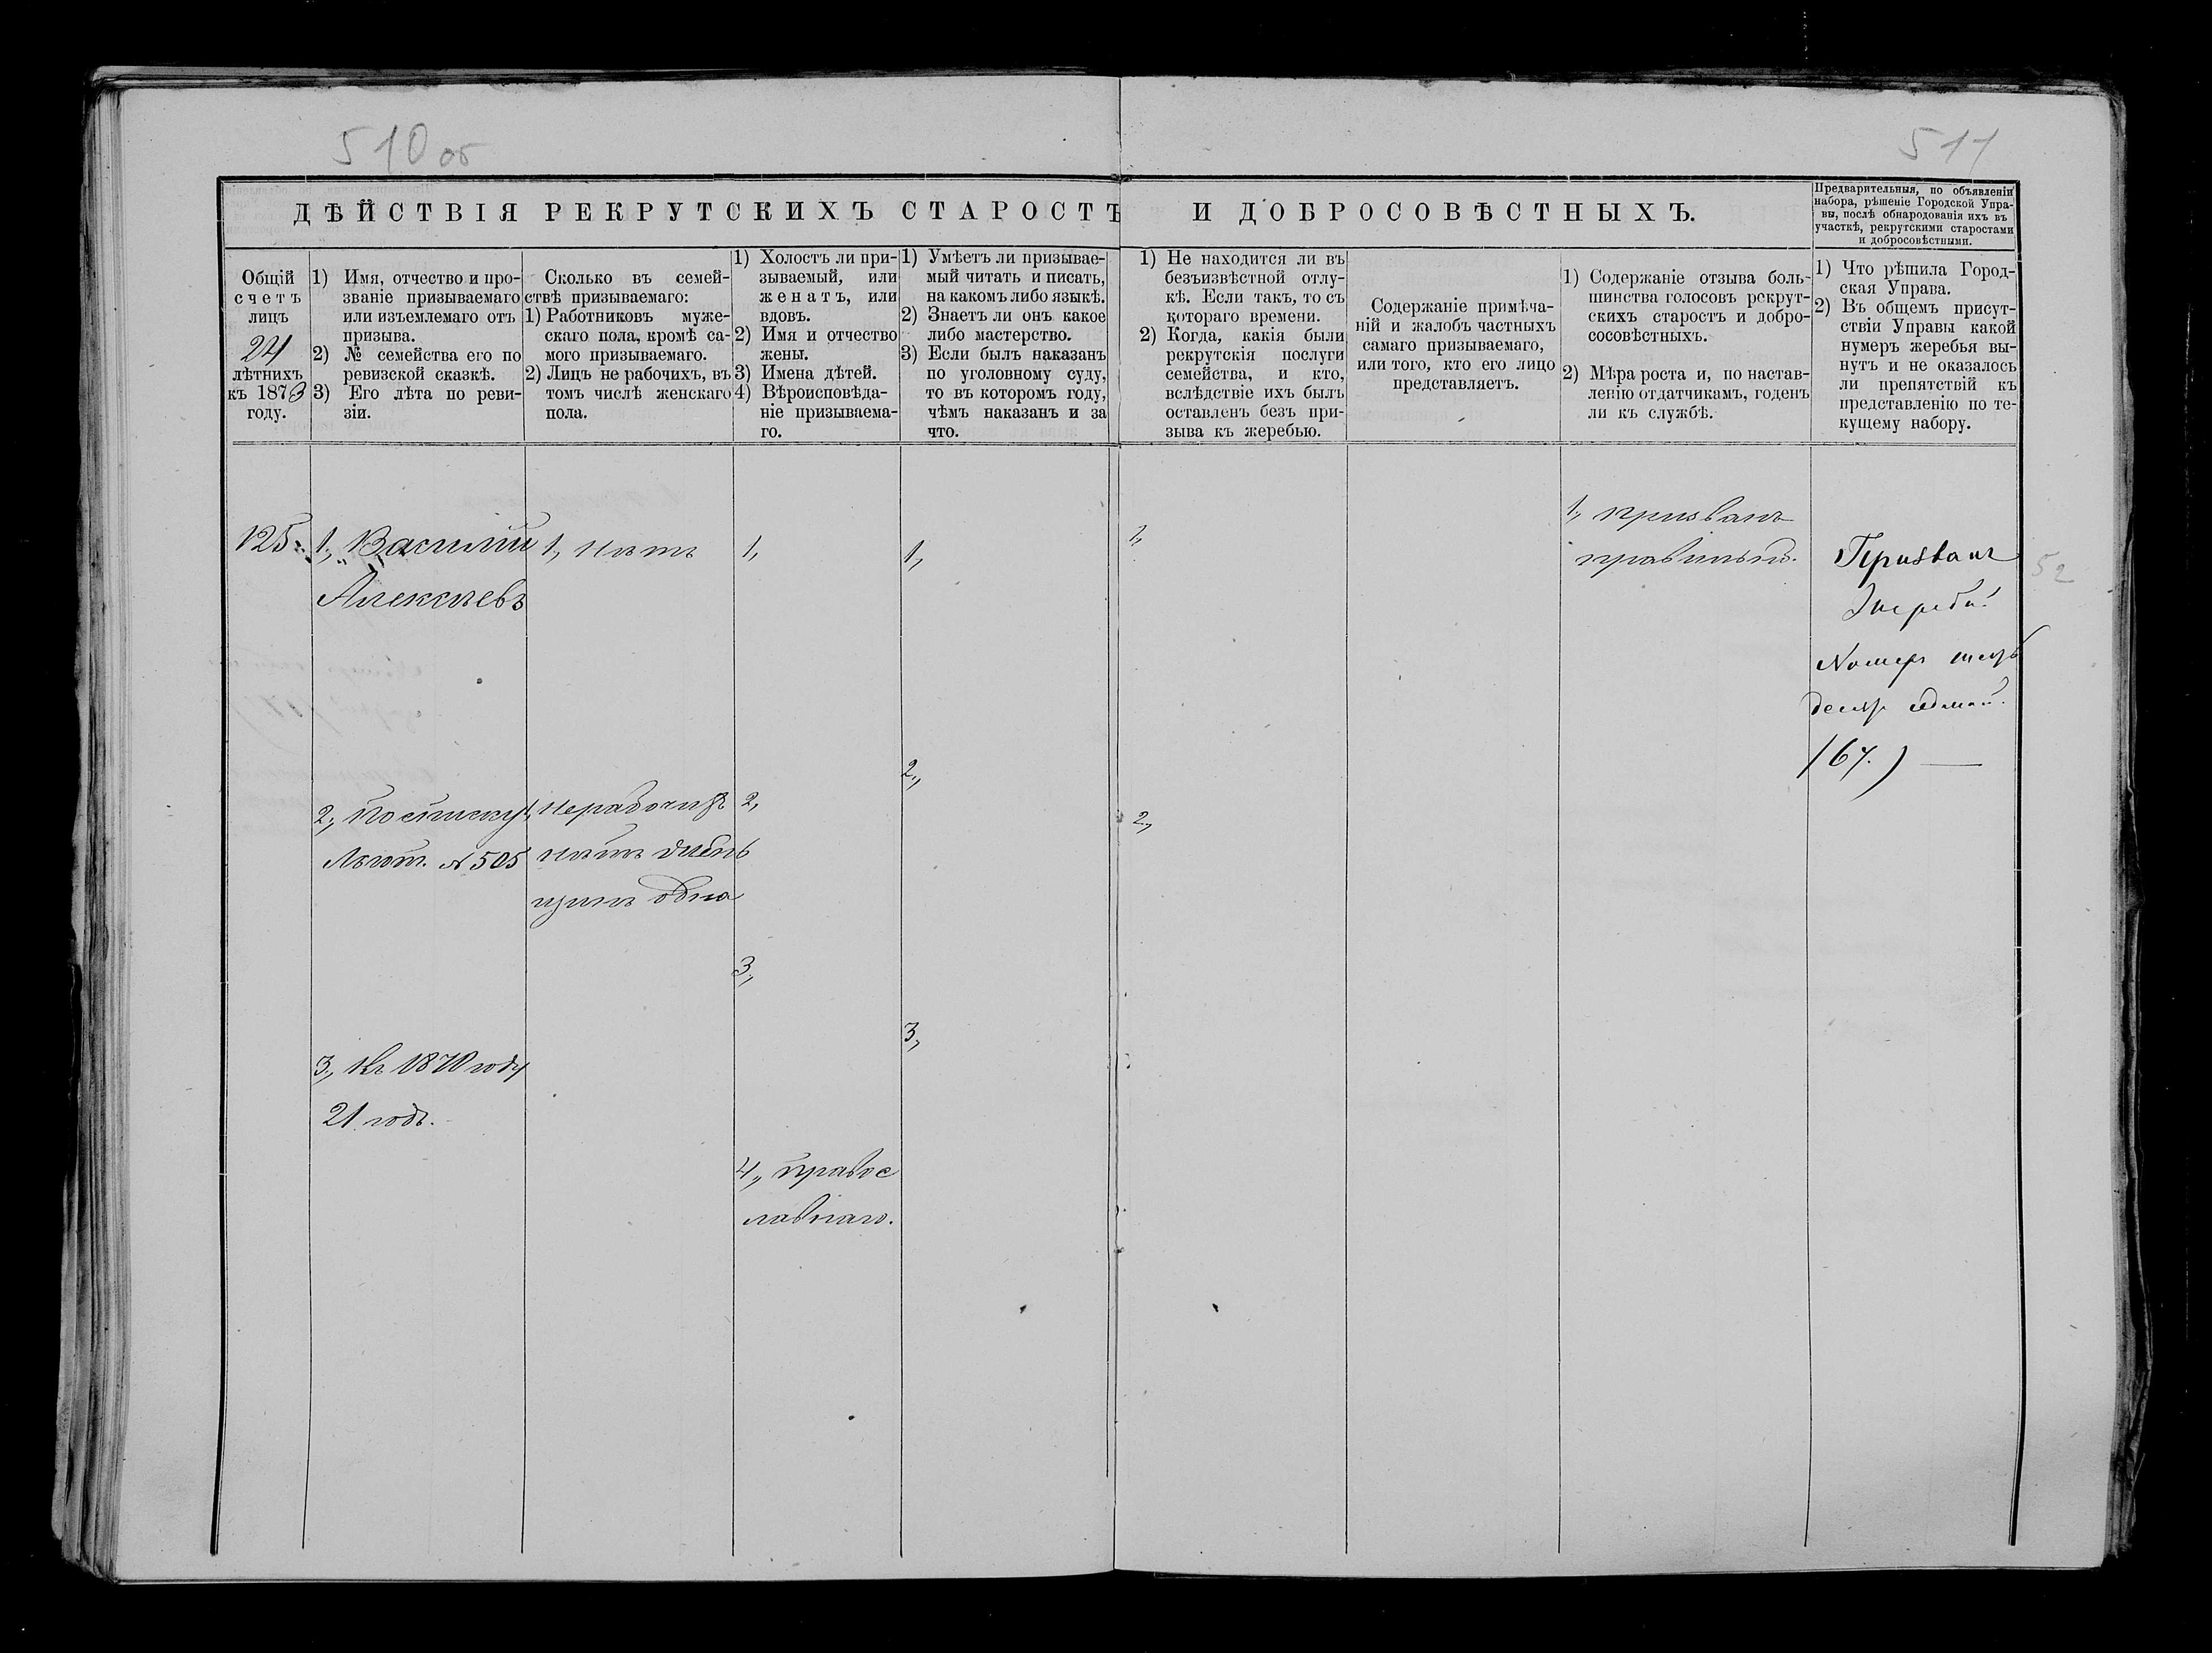 510 об
511
ДѢЙСТВІЯ РЕКРУТСКИХЪ СТАРОСТЪ И ДОБРОСОВѢСТНЫХЪ.
Предварительныя, по объявленіи
набора, рѣшеніе Городской Упра-
вы, послѣ обнародованія ихъ въ
участкѣ, рекрутскими старостами
и добросовѣстными.
Общій
счетъ
лицъ
24
лѣтнихъ
къ 1873
году.
1) Имя, отчество и про-
званіе призываемаго
или изъемлемаго отъ
призыва.
2) № семейства его по
ревизской сказкѣ.
3) Его лѣта по реви-
зіи.
Сколько въ семей-
ствѣ призываемаго:
1) Работниковъ муже-
скаго пола, кромѣ са-
мого призываемаго.
2) Лицъ не рабочихъ, въ
томъ числѣ женскаго
пола.
1) Холостъ ли при-
зываемый, или
женатъ, или
вдовъ.
2) Имя и отчество
жены.
3) Имена дѣтей.
4) Вѣроисповѣда-
ніе призываема-
го.
1) Умѣетъ ли призывае-
мый читать и писать,
на какомъ либо языкѣ.
2) Знаетъ ли онъ какое
либо мастерство.
3) Если былъ наказанъ
по уголовному суду,
то въ которомъ году,
чѣмъ наказанъ и за
что.
1) Не находится ли въ
безъизвѣстной отлу-
кѣ. Если такъ, то съ
котораго времени.
2) Когда, какія были
рекрутскія послуги
семейства, и кто,
вслѣдствіе ихъ былъ
оставленъ безъ при-
зыва къ жеребью.
Содержаніе примѣча-
ній и жалобъ частныхъ
самаго призываемаго,
или того, кто его лицо
представляетъ.
1) Содержаніе отзыва боль-
шинства голосовъ рекрут-
скихъ старостъ и добро-
сосовѣстныхъ.
2) Мѣра роста и, по настав-
ленію отдатчикамъ, годенъ
ли къ службѣ.
1) Что рѣшила Город-
ская Управа.
2) Въ общемъ присут-
ствіи Управы какой
нумеръ жеребья вы-
нутъ и не оказалось
ли препятствій къ
представленію по те-
кущему набору.
125.
1, Василій
Алексѣевъ
2, По списку
Льгот. № 505
3, Къ 1870 году
21 годъ.
1, Нѣтъ
2, нерабочихъ
нѣтъ жен
щинъ одна
1,
2,
3,
4, правос
лавнаго.
1,
2,
3,
1,
2,
1, призванъ
правильно.
Призванъ
Жребій
Номеръ шесть
десятъ седьмой.
(67.) —
52